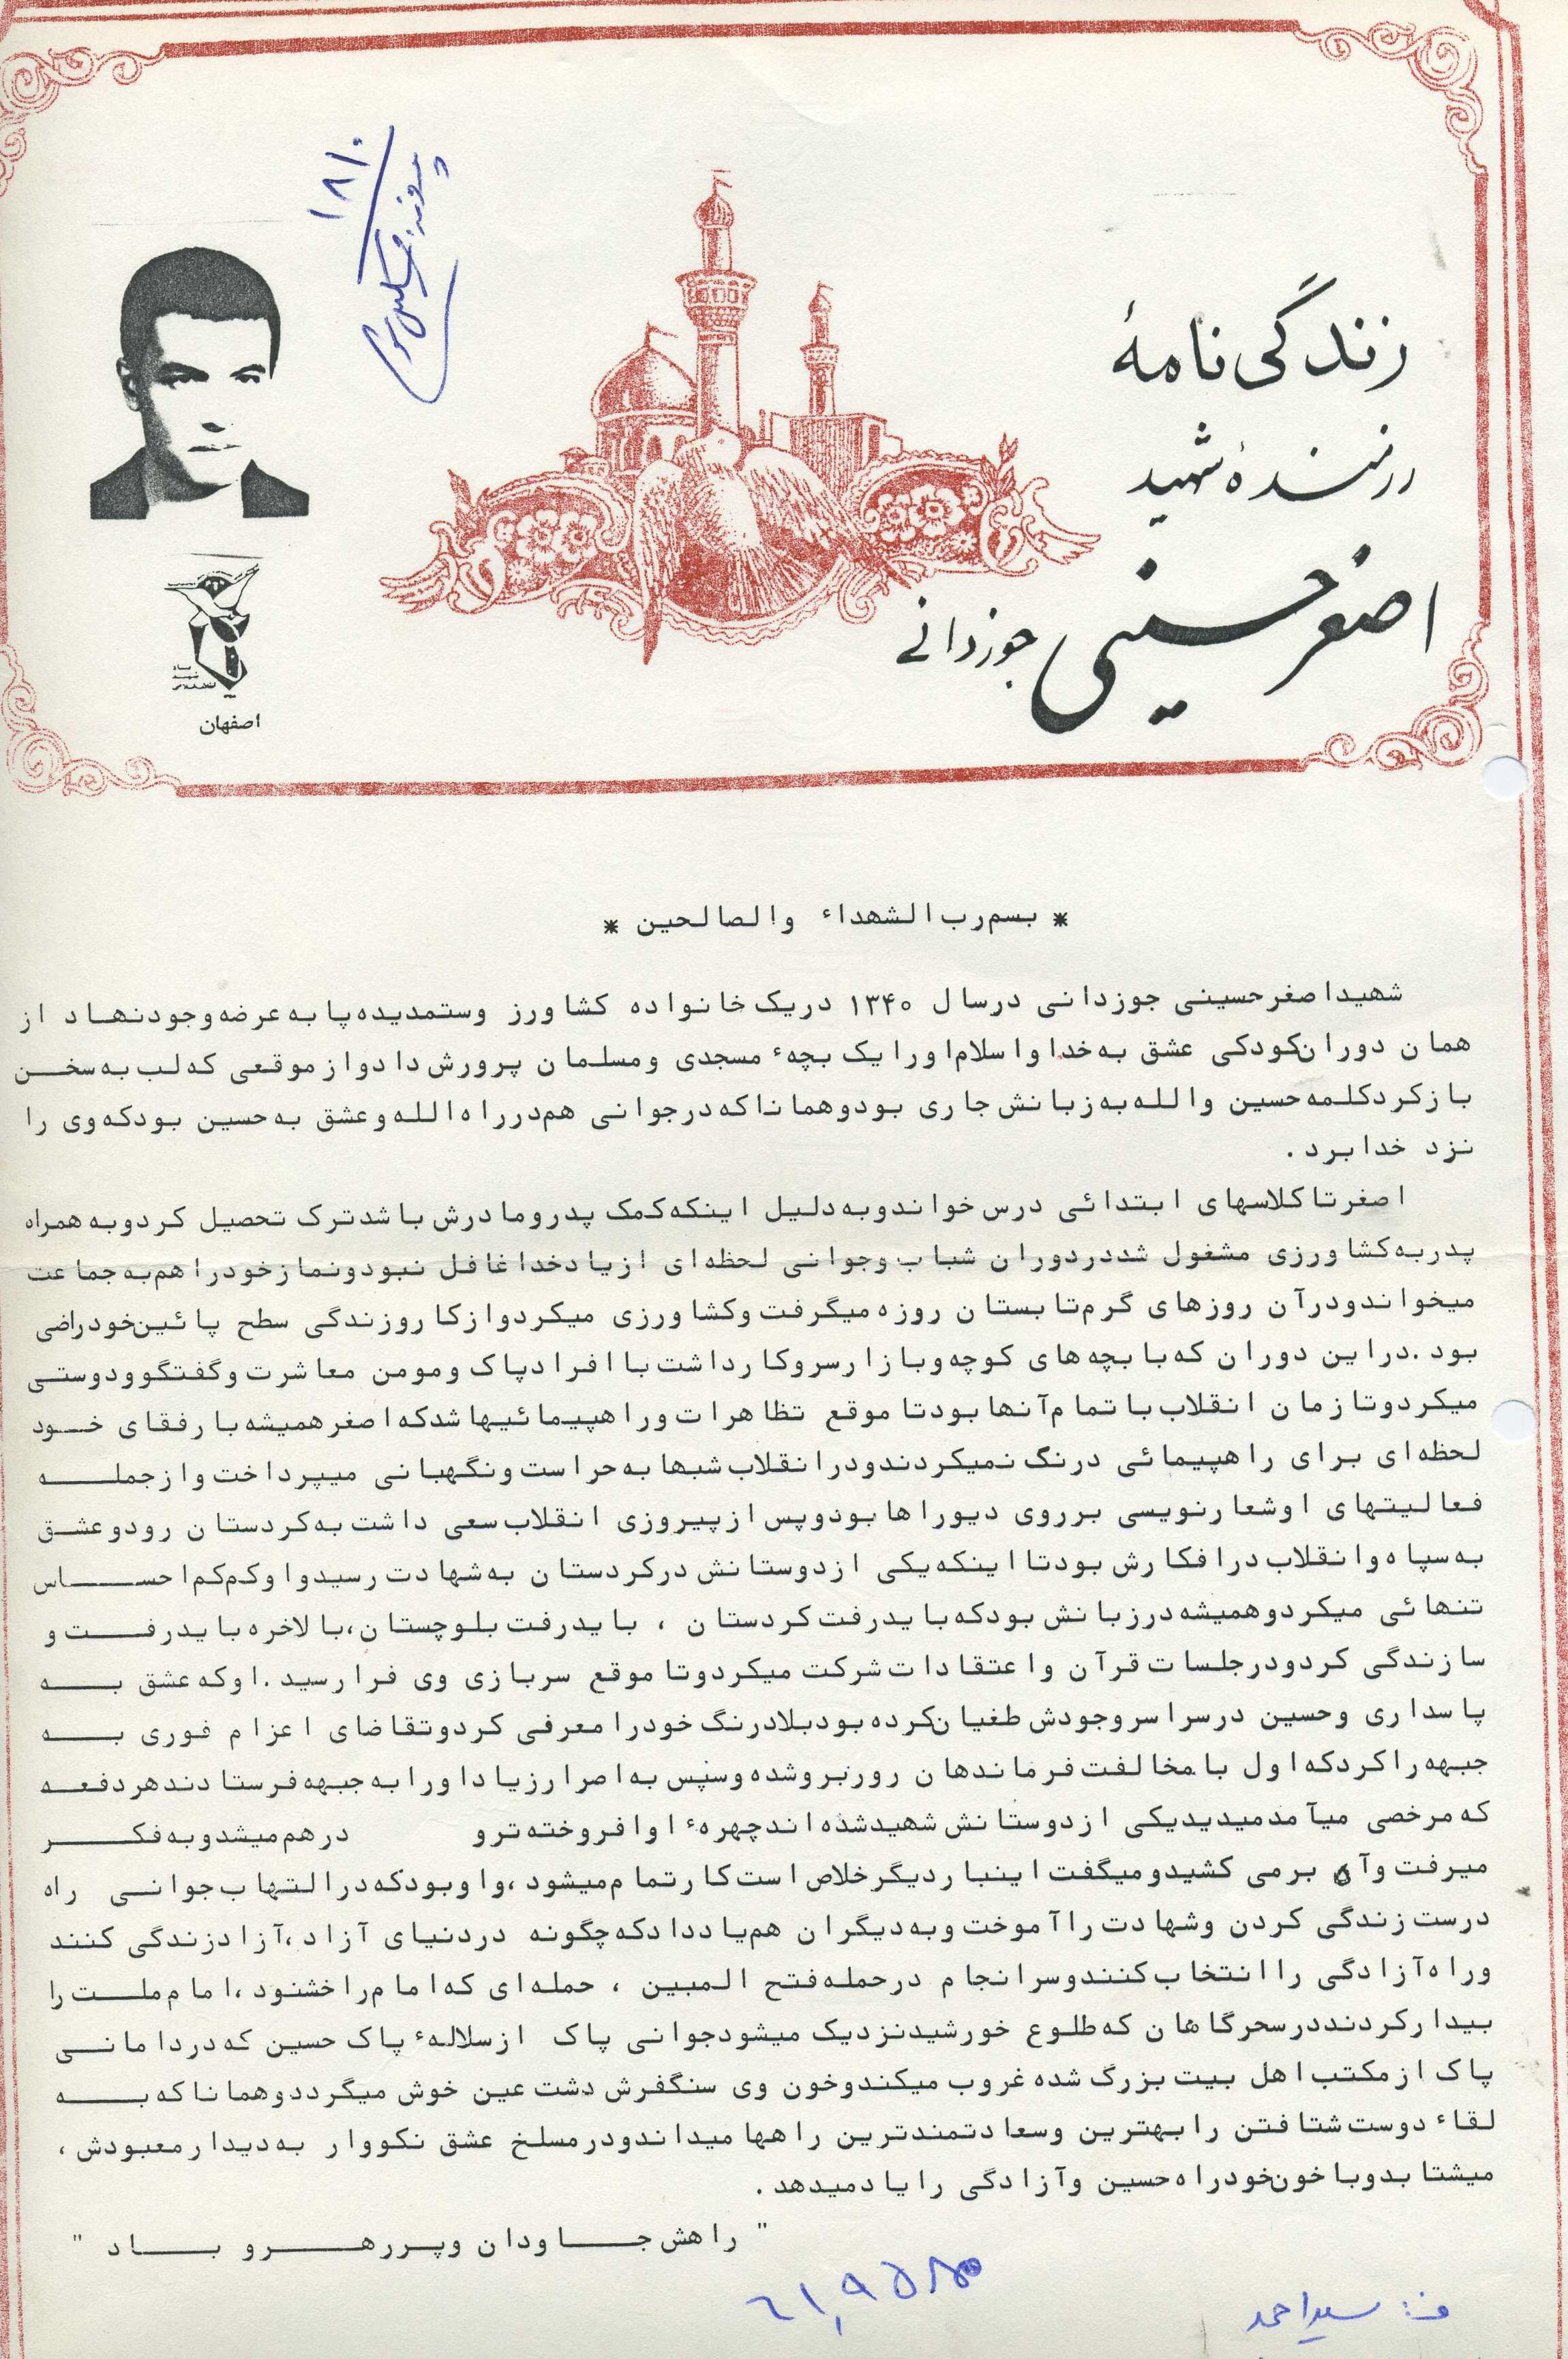 زندگی نامهٔ
رزمندهٔ شهید
اصغر حسینی جوزدانی
۱۸/۰
اصفهان
* بسم رب الشهداء والصالحین *
شهید اصغر حسینی جوزدانی در سال ۱۳۴۰ در یک خانواده کشاورز وستمدیده پا به عرضه وجود نهاد از
همان دوران کودکی عشق به خدا و اسلام او را یک بچهٔ مسجدی و مسلمان پرورش داد و از موقعی که لب به سخن
باز کرد کلمه حسین و الله به زبانش جاری بود و همانا که در جوانی هم در راه الله و عشق به حسین بود که وی را
نزد خدا برد .
اصغر تا کلاسهای ابتدائی درس خواند و به دلیل اینکه کمک پدر و مادرش باشد ترک تحصیل کرد و به همراه
پدر به کشاورزی مشغول شد در دوران شباب و جوانی لحظه ای از یاد خدا غافل نبود و نماز خود را هم به جماعت
میخواند و در آن روزهای گرم تابستان روزه میگرفت و کشاورزی میکرد و از کار و زندگی سطح پائین خود راضی
بود . در این دوران که با بچه های کوچه و بازار سر و کار داشت با افراد پاک و مومن معاشرت و گفتگو و دوستی
میکرد و تا زمان انقلاب با تمام آنها بود تا موقع تظاهرات و راهپیمائیها شد که اصغر همیشه با رفقای خود
لحظه ای برای راهپیمائی درنگ نمیکردند و در انقلاب شبها به حراست و نگهبانی میپرداخت و از جمله
فعالیتهای او شعار نویسی بر روی دیورا ها بود و پس از پیروزی انقلاب سعی داشت به کردستان رود و عشق
به سپاه و انقلاب در افکارش بود تا اینکه یکی از دوستانش در کردستان به شهادت رسید و او کم کم احساس
تنهائی میکرد و همیشه در زبانش بود که باید رفت کردستان ، باید رفت بلوچستان ، بالاخره باید رفت و
سازندگی کرد و در جلسات قرآن و اعتقادات شرکت میکرد و تا موقع سربازی وی فرا رسید . او که عشق به
پاسداری و حسین در سراسر وجودش طغیان کرده بود بلادرنگ خود را معرفی کرد و تقاضای اعزام فوری به
جبهه را کرد که اول با مخالفت فرماندهان روربرو شده و سپس به اصرار زیاد او را به جبهه فرستادند هر دفعه
که مرخصی میآمد میدید یکی از دوستانش شهید شده اند چهرهٔ او افروخته تر و در هم میشد و به فکر
میرفت و آه بر می کشید و میگفت اینبار دیگر خلاص است کار تمام میشود ، و او بود که در التهاب جوانی راه
درست زندگی کردن و شهادت را آموخت و به دیگران هم یاد داد که چگونه در دنیای آزاد ، آزاد زندگی کنند
و راه آزادگی را انتخاب کنند و سرانجام در حمله فتح المبین ، حمله ای که امام را خشنود ، امام ملت را
بیدار کردند در سحرگاهان که طلوع خورشید نزدیک میشود جوانی پاک از سلالهٔ پاک حسین که در دامانی
پاک از مکتب اهل بیت بزرگ شده غروب میکند و خون وی سنگفرش دشت عین خوش میگردد و همانا که به
لقاء دوست شتافتن را بهترین و سعادتمندترین راهها میداند و در مسلخ عشق نکووار به دیدار معبودش ،
میشتابد و با خون خود راه حسین و آزادگی را یاد میدهد .
" راهش جاودان و پر رهرو باد "
ف : سید احمد